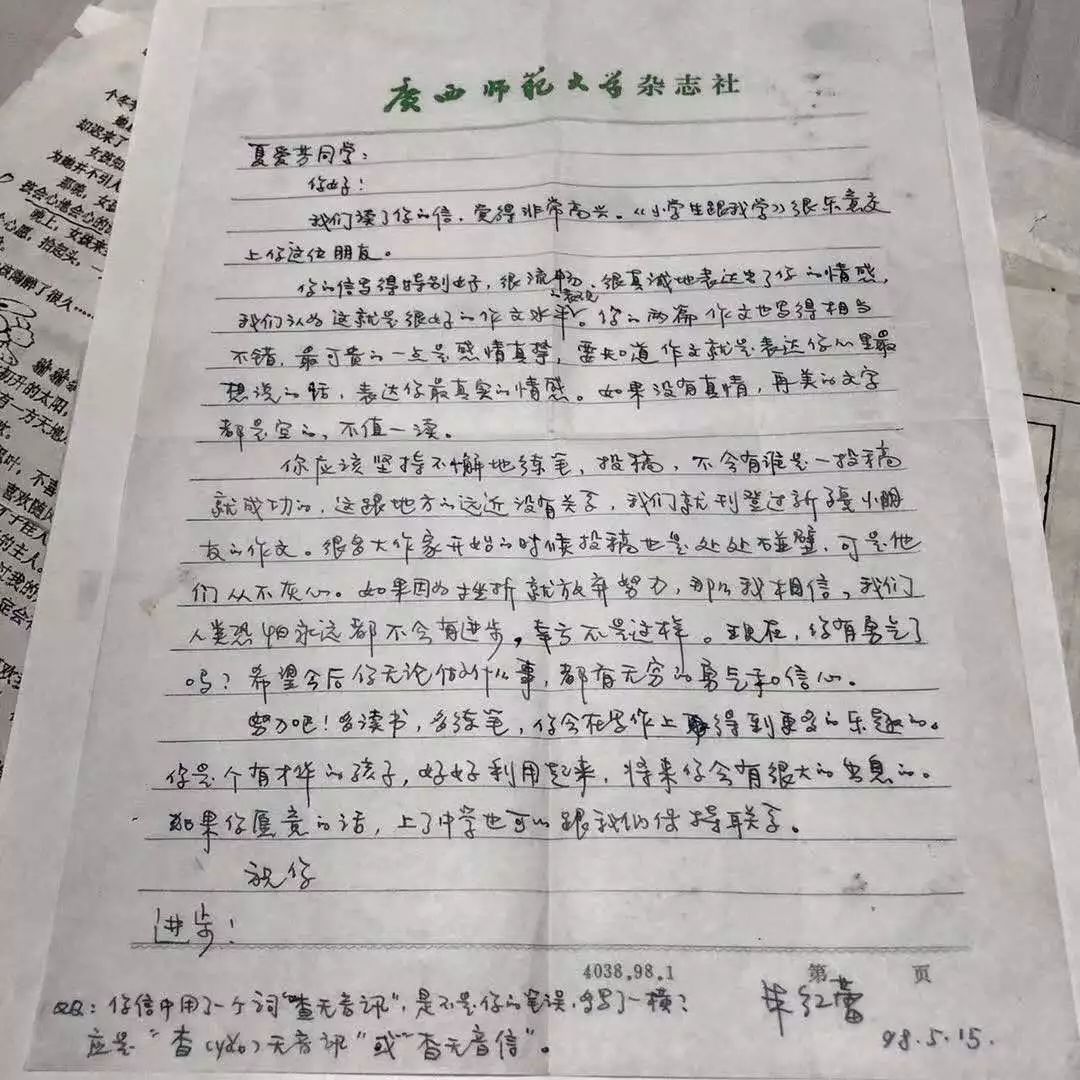 广西师范大学杂志社
夏爱芳同学:
你好!
我们读了你的信,觉得非常高兴。《小学生跟我学》很乐意交
上你这位朋友。
你的信写得特别好,很流畅、很真诚地表达出了你的情感,
我们认为这就是很好的作文水平的表现。你的两篇作文也写得相当
不错,最可贵的一点是感情真挚,要知道作文就是表达你心里最
想说的话,表达你最真实的情感。如果没有真情,再美的文字
都是空的,不值一读。
你应该坚持不懈地练笔,投稿,不会有谁是一投稿
就成功的,这跟地方的远近没有关系,我们就刊登过新疆小朋
友的作文。很多大作家开始的时候投稿也是处处碰壁,可是他
们从不灰心。如果因为挫折就放弃努力,那么我相信,我们
人类恐怕永远都不会有进步,幸亏不是这样。现在,你有勇气了
吗?希望今后你无论做什么事,都有无穷的勇气和信心。
努力吧!多读书,多练笔,你会在写作上得到更多的乐趣的。
你是个有才华的孩子,好好利用起来,将来你会有很大的出息的。
如果你愿意的话,上了中学也可以跟我们保持联系。
祝你
进步!
4038.98.1 第 页
又及:你信中用了一个词“查无音讯”,是不是你的笔误,多写了一横?
应是“杳(yǎo)无音讯”或“杳无音信”。
朱红蕾
98.5.15.
个冬
却迟来了
女孩知
为她并不引人
那晚,女
晚上,女孩来
心愿,抬起头,一
陶醉了很久……
初开的太阳,
有一方天地
不喜
喜欢随风
的主人。
过我的
定会